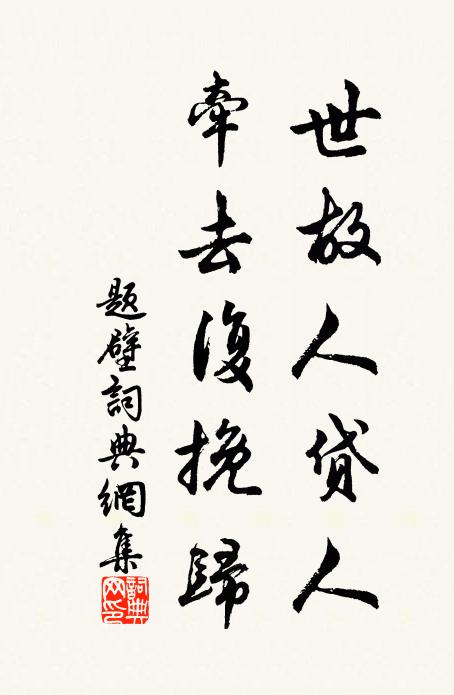 世故人貸人
牽去復挽歸
题壁詞典網集
詞典
网印